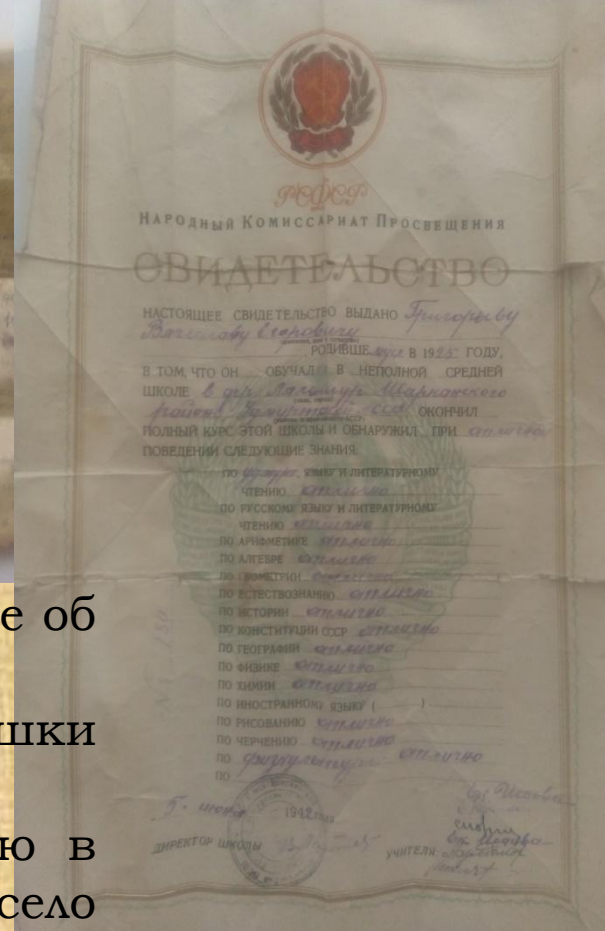 РСФСР
НАРОДНЫЙ КОМИССАРИАТ ПРОСВЕЩЕНИЯ
СВИДЕТЕЛЬСТВО
НАСТОЯЩЕЕ СВИДЕТЕЛЬСТВО ВЫДАНО Григорьеву
Егоровичу
РОДИВШЕ муся В 1925 ГОДУ,
В ТОМ, ЧТО ОН ОБУЧАЛ В НЕПОЛНОЙ СРЕДНЕЙ
ШКОЛЕ в дер. Шарканского
района ОКОНЧИЛ
ПОЛНЫЙ КУРС ЭТОЙ ШКОЛЫ И ОБНАРУЖИЛ ПРИ отличном
ПОВЕДЕНИИ СЛЕДУЮЩИЕ ЗНАНИЯ:
ПО удмурт. ЯЗЫКУ И ЛИТЕРАТУРНОМУ
ЧТЕНИЮ отлично
ПО РУССКОМУ ЯЗЫКУ И ЛИТЕРАТУРНОМУ
ЧТЕНИЮ отлично
ПО АРИФМЕТИКЕ отлично
ПО АЛГЕБРЕ отлично
ПО ГЕОМЕТРИИ отлично
ПО ЕСТЕСТВОЗНАНИЮ отлично
ПО ИСТОРИИ отлично
ПО КОНСТИТУЦИИ СССР отлично
ПО ГЕОГРАФИИ отлично
ПО ФИЗИКЕ отлично
ПО ХИМИИ отлично
ПО ИНОСТРАННОМУ ЯЗЫКУ ( )
ПО РИСОВАНИЮ отлично
ПО ЧЕРЧЕНИЮ отлично
ПО физкультуре отлично
ПО
5 июня 1942 года
ДИРЕКТОР ШКОЛЫ
УЧИТЕЛЯ:
е об
шки
ю в
село